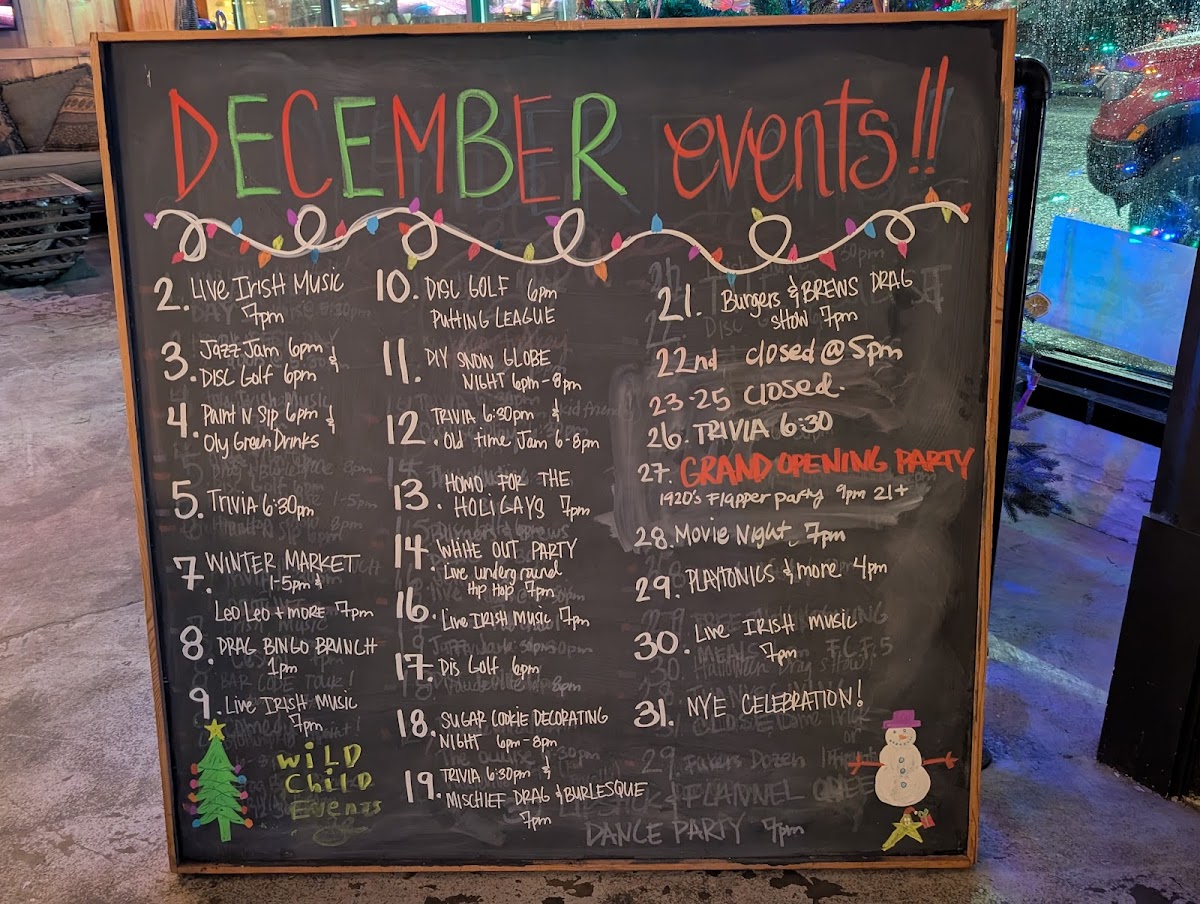 DECEMBER events!!
2. Live Irish Music
7pm
3. Jazz Jam 6pm &
DISC Golf 6pm
4. Paint N Sip 6pm &
Oly Green Drinks
5. Trivia 6:30pm
7. WINTER MARKET
1-5pm &
Leo Leo + more 7pm
8. DRAG BINGO BRUNCH
1pm
9. Live Irish Music
7pm
WiLD
Child
Events
10. DISC GOLF 6pm
PUTTING LEAGUE
11. DIY SNOW GLOBE
NIGHT 6pm-8pm
12. TRIVIA 6:30pm &
Old time Jam 6-8pm
13. HOMO FOR THE
HOLIGAYS 7pm
14. WHITE OUT PARTY
Live underground
Hip Hop 7pm
16. Live IRISH MUSIC 7pm
17. Dis Golf 6pm
18. SUGAR COOKIE DECORATING
NIGHT 6pm-8pm
19. TRIVIA 6:30pm &
MISCHIEF DRAG & BURLESQUE
7pm
21. Burgers & BREWS DRAG
SHOW 7pm
22nd closed @ 5pm
23-25 closed.
26. TRIVIA 6:30
27. GRAND OPENING PARTY
1920's Flapper party 9pm 21+
28. Movie Night 7pm
29. PLAYTONICS & more 4pm
30. Live IRISH Music
7pm
31. NYE CELEBRATION!
DANCE PARTY 7pm